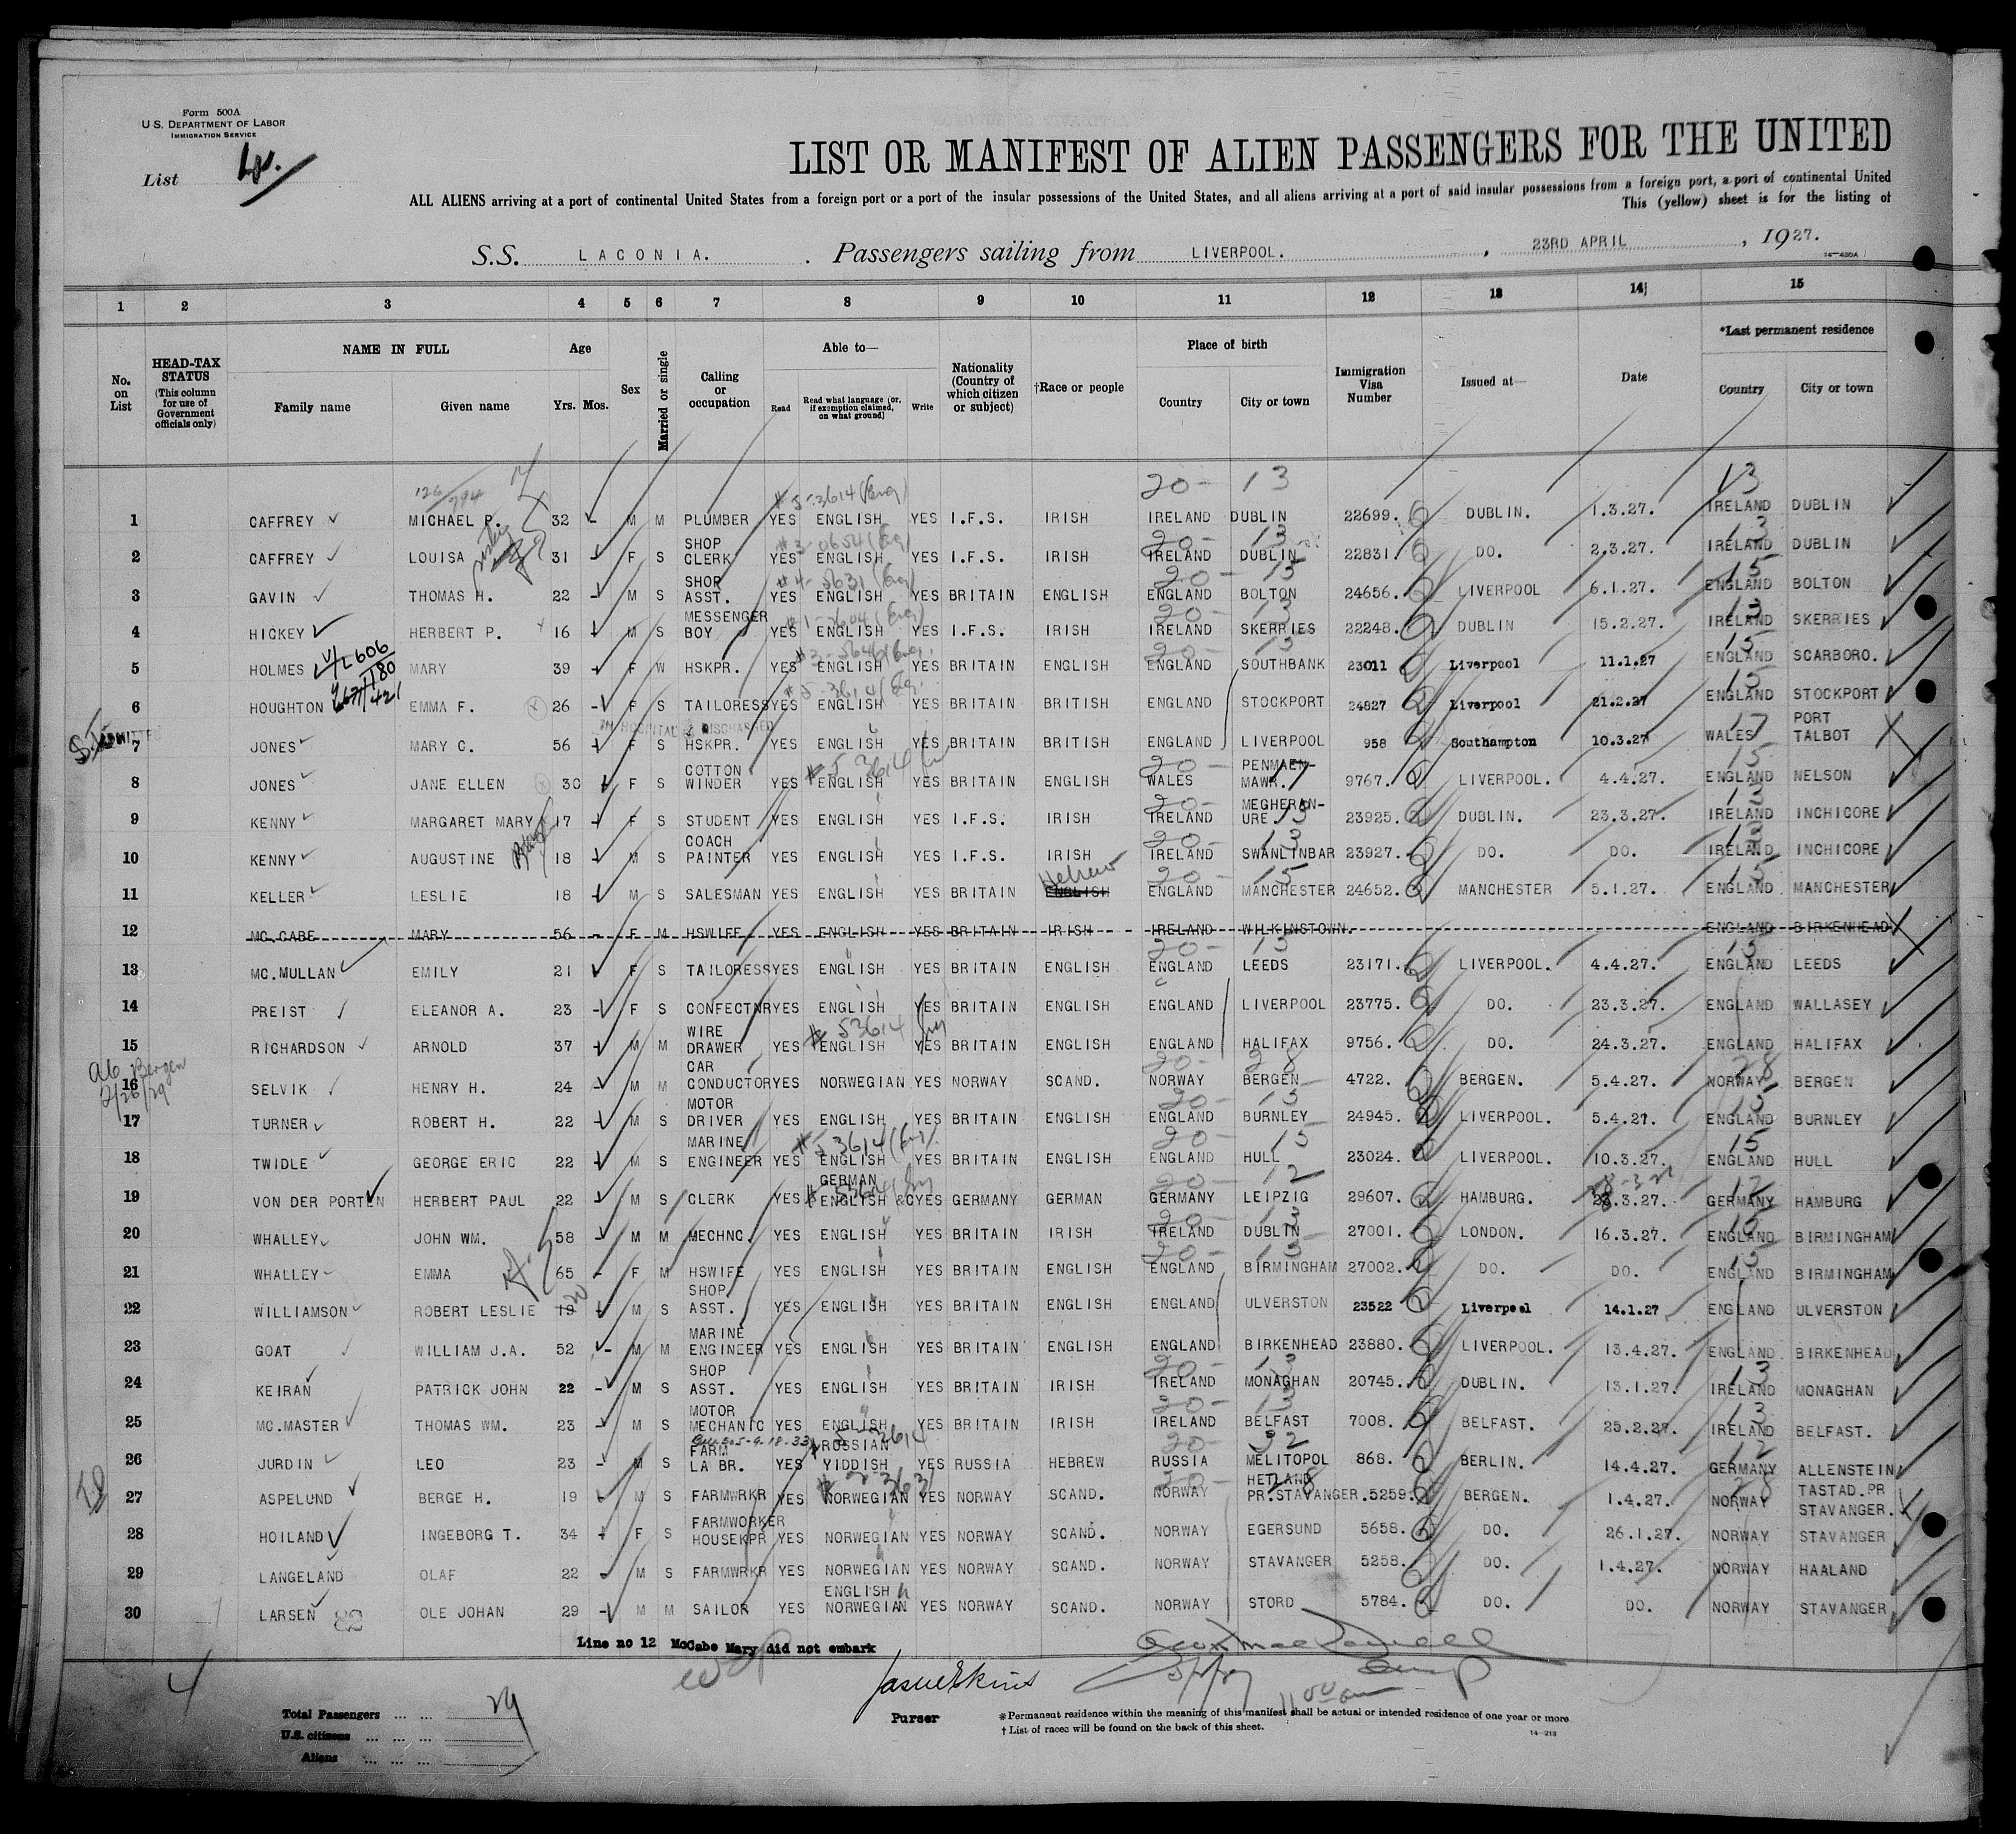 Form 500A
U.S. DEPARTMENT OF LABOR
IMMIGRATION SERVICE
List
LIST OR MANIFEST OF ALIEN PASSENGERS FOR THE UNITED
ALL ALIENS arriving at a port of continental United States from a foreign port or a port of the insular possessions of the United States, and all aliens arriving at a port of said insular possessions from a foreign port, a port of continental United
This (yellow) sheet is for the listing of
S.S. LACONIA. Passengers sailing from LIVERPOOL. , 23RD APRIL , 1927.
14—420A
1 2 3 4 5 6 7 8 9 10 11 12 13 14 15
No. on List
HEAD-TAX STATUS (This column for use of Government officials only)
NAME IN FULL
Family name Given name
Age
Yrs. Mos.
Sex
Married or single
Calling or occupation
Able to—
Read Read what language (or, if exemption claimed, on what ground) Write
Nationality (Country of which citizen or subject)
†Race or people
Place of birth
Country City or town
Immigration Visa Number
Issued at—
Date
*Last permanent residence
Country City or town
20- 13 13
126/794
# 5-3614 (Eng)
1 CAFFREY MICHAEL P. 32 - M M PLUMBER YES ENGLISH YES I.F.S. IRISH IRELAND DUBLIN 22699. DUBLIN. 1.3.27. IRELAND DUBLIN
#3-0654 (Eng) 20- 13 13
2 CAFFREY LOUISA 31 F S SHOP CLERK YES ENGLISH YES I.F.S. IRISH IRELAND DUBLIN 22831 DO. 2.3.27. IRELAND DUBLIN
#4-5631 (Eng) 20- 15 15
3 GAVIN THOMAS H. 22 - M S SHOP ASST. YES ENGLISH YES BRITAIN ENGLISH ENGLAND BOLTON 24656. LIVERPOOL 6.1.27. ENGLAND BOLTON
#1-3604 (Eng) 20- 13 13
4 HICKEY HERBERT P. 16 M S MESSENGER BOY YES ENGLISH YES I.F.S. IRISH IRELAND SKERRIES 22248. DUBLIN 15.2.27. IRELAND SKERRIES
20- 15 15
5 HOLMES MARY 39 - F W HSKPR. YES ENGLISH YES BRITAIN ENGLISH ENGLAND SOUTHBANK 23011 Liverpool 11.1.27 ENGLAND SCARBORO.
# 5-3614 (Eng. 15
6 HOUGHTON EMMA F. 26 - F S TAILORESS YES ENGLISH YES BRITAIN BRITISH ENGLAND STOCKPORT 24827 Liverpool 21.2.27 ENGLAND STOCKPORT
IN HOSPITAL DISCHARGED
ADMITTED 17
7 JONES MARY C. 56 F S HSKPR. YES ENGLISH YES BRITAIN BRITISH ENGLAND LIVERPOOL 958 Southampton 10.3.27 WALES PORT TALBOT
# 5 3614 20- 17 15
8 JONES JANE ELLEN 30 F S COTTON WINDER YES ENGLISH YES BRITAIN ENGLISH WALES PENMAEN-MAWR. 9767. LIVERPOOL. 4.4.27. ENGLAND NELSON
20- 13 13
9 KENNY MARGARET MARY 17 - F S STUDENT YES ENGLISH YES I.F.S. IRISH IRELAND MEGHERAN-URE 23925. DUBLIN. 23.3.27. IRELAND INCHICORE
20- 13 13
10 KENNY AUGUSTINE 18 M S COACH PAINTER YES ENGLISH YES I.F.S. IRISH IRELAND SWANLINBAR 23927. DO. DO. IRELAND INCHICORE
Hebrew 20- 15 15
11 KELLER LESLIE 18 M S SALESMAN YES ENGLISH YES BRITAIN ENGLISH ENGLAND MANCHESTER 24652. MANCHESTER 5.1.27. ENGLAND MANCHESTER
12 MC.CABE MARY 56 - F M HSWIFE YES ENGLISH YES BRITAIN IRISH IRELAND WILKINSTOWN. ENGLAND BIRKENHEAD
20- 15 15
13 MC.MULLAN EMILY 21 F S TAILORESS YES ENGLISH YES BRITAIN ENGLISH ENGLAND LEEDS 23171. LIVERPOOL. 4.4.27. ENGLAND LEEDS
14 PREIST ELEANOR A. 23 - F S CONFECTNR YES ENGLISH YES BRITAIN ENGLISH ENGLAND LIVERPOOL 23775. DO. 23.3.27. ENGLAND WALLASEY
# 53614
15 RICHARDSON ARNOLD 37 - M M WIRE DRAWER YES ENGLISH YES BRITAIN ENGLISH ENGLAND HALIFAX 9756. DO. 24.3.27. ENGLAND HALIFAX
Bergen 2/26/29 20- 28 28
16 SELVIK HENRY H. 24 - M M CAR CONDUCTOR YES NORWEGIAN YES NORWAY SCAND. NORWAY BERGEN 4722. BERGEN. 5.4.27. NORWAY BERGEN
20- 15 15
17 TURNER ROBERT H. 22 - M S MOTOR DRIVER YES ENGLISH YES BRITAIN ENGLISH ENGLAND BURNLEY 24945. LIVERPOOL. 5.4.27. ENGLAND BURNLEY
# 5 3614 (Eng). 20- 15 15
18 TWIDLE GEORGE ERIC 22 M S MARINE ENGINEER YES ENGLISH YES BRITAIN ENGLISH ENGLAND HULL 23024. LIVERPOOL. 10.3.27. ENGLAND HULL
20- 12 28-3-27 12
19 VON DER PORTEN HERBERT PAUL 22 - M S CLERK YES GERMAN ENGLISH &C YES GERMANY GERMAN GERMANY LEIPZIG 29607. HAMBURG. 28.3.27. GERMANY HAMBURG
20- 13 15
20 WHALLEY JOHN WM. 58 - M M MECHNC. YES ENGLISH YES BRITAIN IRISH IRELAND DUBLIN 27001. LONDON. 16.3.27. ENGLAND BIRMINGHAM
20- 15 15
21 WHALLEY EMMA 65 - F M HSWIFE YES ENGLISH YES BRITAIN ENGLISH ENGLAND BIRMINGHAM 27002. DO. DO. ENGLAND BIRMINGHAM
20
22 WILLIAMSON ROBERT LESLIE 19 M S SHOP ASST. YES ENGLISH YES BRITAIN ENGLISH ENGLAND ULVERSTON 23522 Liverpool 14.1.27 ENGLAND ULVERSTON
23 GOAT WILLIAM J.A. 52 - M M MARINE ENGINEER YES ENGLISH YES BRITAIN ENGLISH ENGLAND BIRKENHEAD 23880. LIVERPOOL. 13.4.27. ENGLAND BIRKENHEAD
20- 13 13
24 KEIRAN PATRICK JOHN 22 - M S SHOP ASST. YES ENGLISH YES BRITAIN IRISH IRELAND MONAGHAN 20745. DUBLIN. 13.1.27. IRELAND MONAGHAN
20- 13 13
25 MC.MASTER THOMAS WM. 23 - M S MOTOR MECHANIC YES ENGLISH YES BRITAIN IRISH IRELAND BELFAST 7008. BELFAST. 25.2.27. IRELAND BELFAST.
20- 32 12
26 JURDIN LEO 23 - M S FARM LABR. YES RUSSIAN YIDDISH YES RUSSIA HEBREW RUSSIA MELITOPOL 868. BERLIN. 14.4.27. GERMANY ALLENSTEIN
20- 28 28
27 ASPELUND BERGE H. 19 M S FARMWRKR YES NORWEGIAN YES NORWAY SCAND. NORWAY HETLAND PR.STAVANGER. 5259. BERGEN. 1.4.27. NORWAY TASTAD.PR STAVANGER.
28 HOILAND INGEBORG T. 34 F S FARMWORKER HOUSEKPR YES NORWEGIAN YES NORWAY SCAND. NORWAY EGERSUND 5658. DO. 26.1.27. NORWAY STAVANGER
29 LANGELAND OLAF 22 - M S FARMWRKR YES NORWEGIAN YES NORWAY SCAND. NORWAY STAVANGER 5258. DO. 1.4.27. NORWAY HAALAND
30 LARSEN OLE JOHAN 29 - M M SAILOR YES ENGLISH NORWEGIAN YES NORWAY SCAND. NORWAY STORD 5784. DO. DO. NORWAY STAVANGER
Line no 12 McCabe Mary did not embark
4
Total Passengers ... ... 29
U.S. citizens ... ... ...
Aliens ... ... ...
Purser
* Permanent residence within the meaning of this manifest shall be actual or intended residence of one year or more
† List of races will be found on the back of this sheet.
14—213